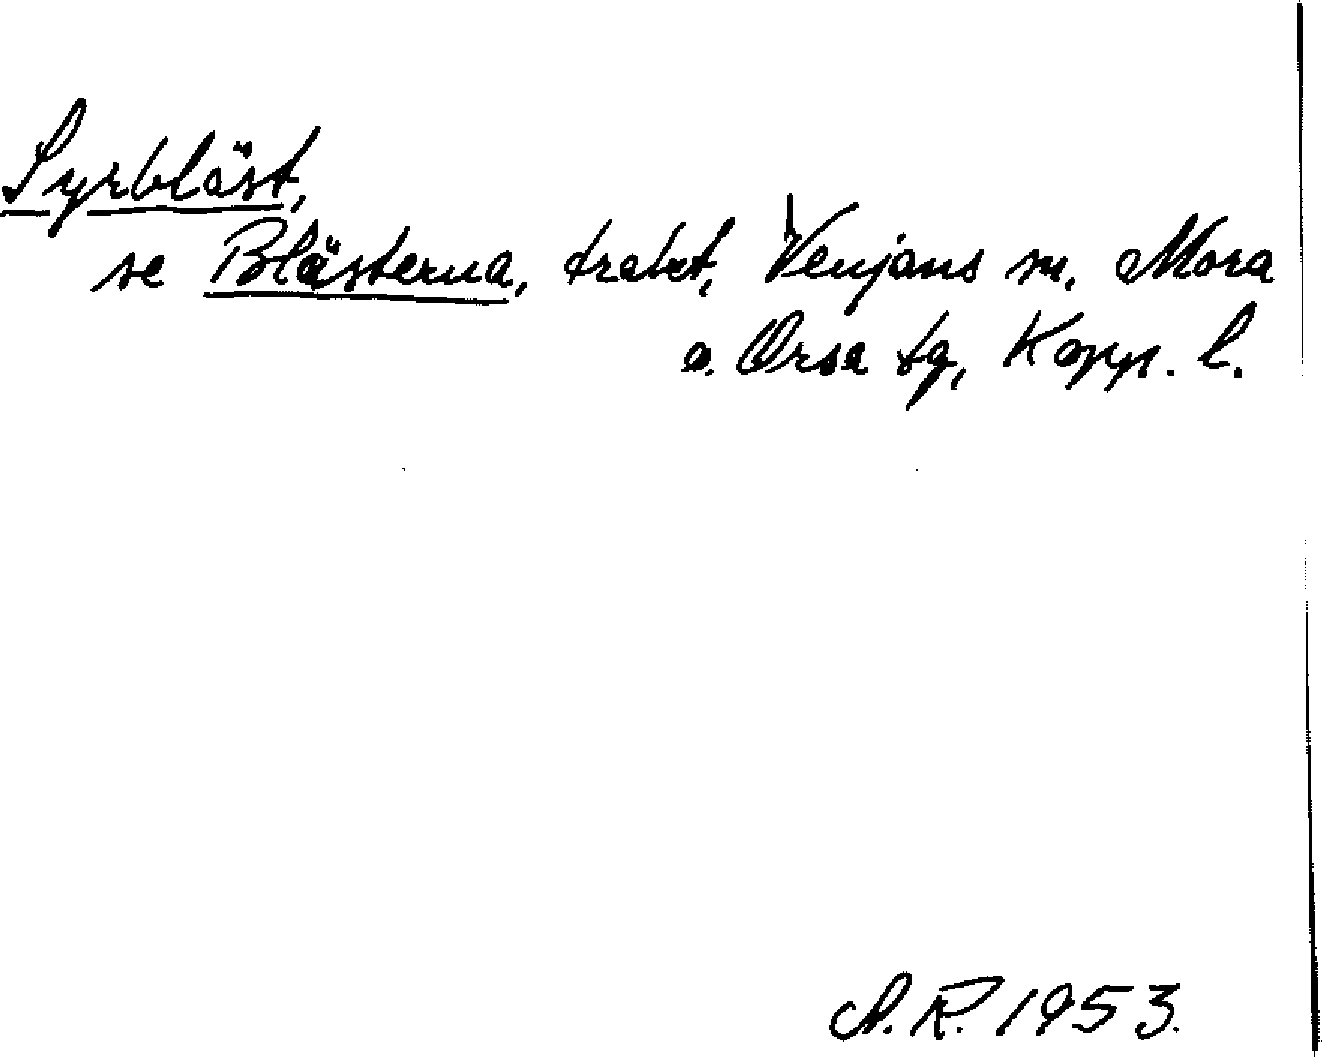 Syrbläst,
se Blästerna, trakt, Venjans sn, Mora
o. Orsa tg, Kopp. l.
A.R. 1953.